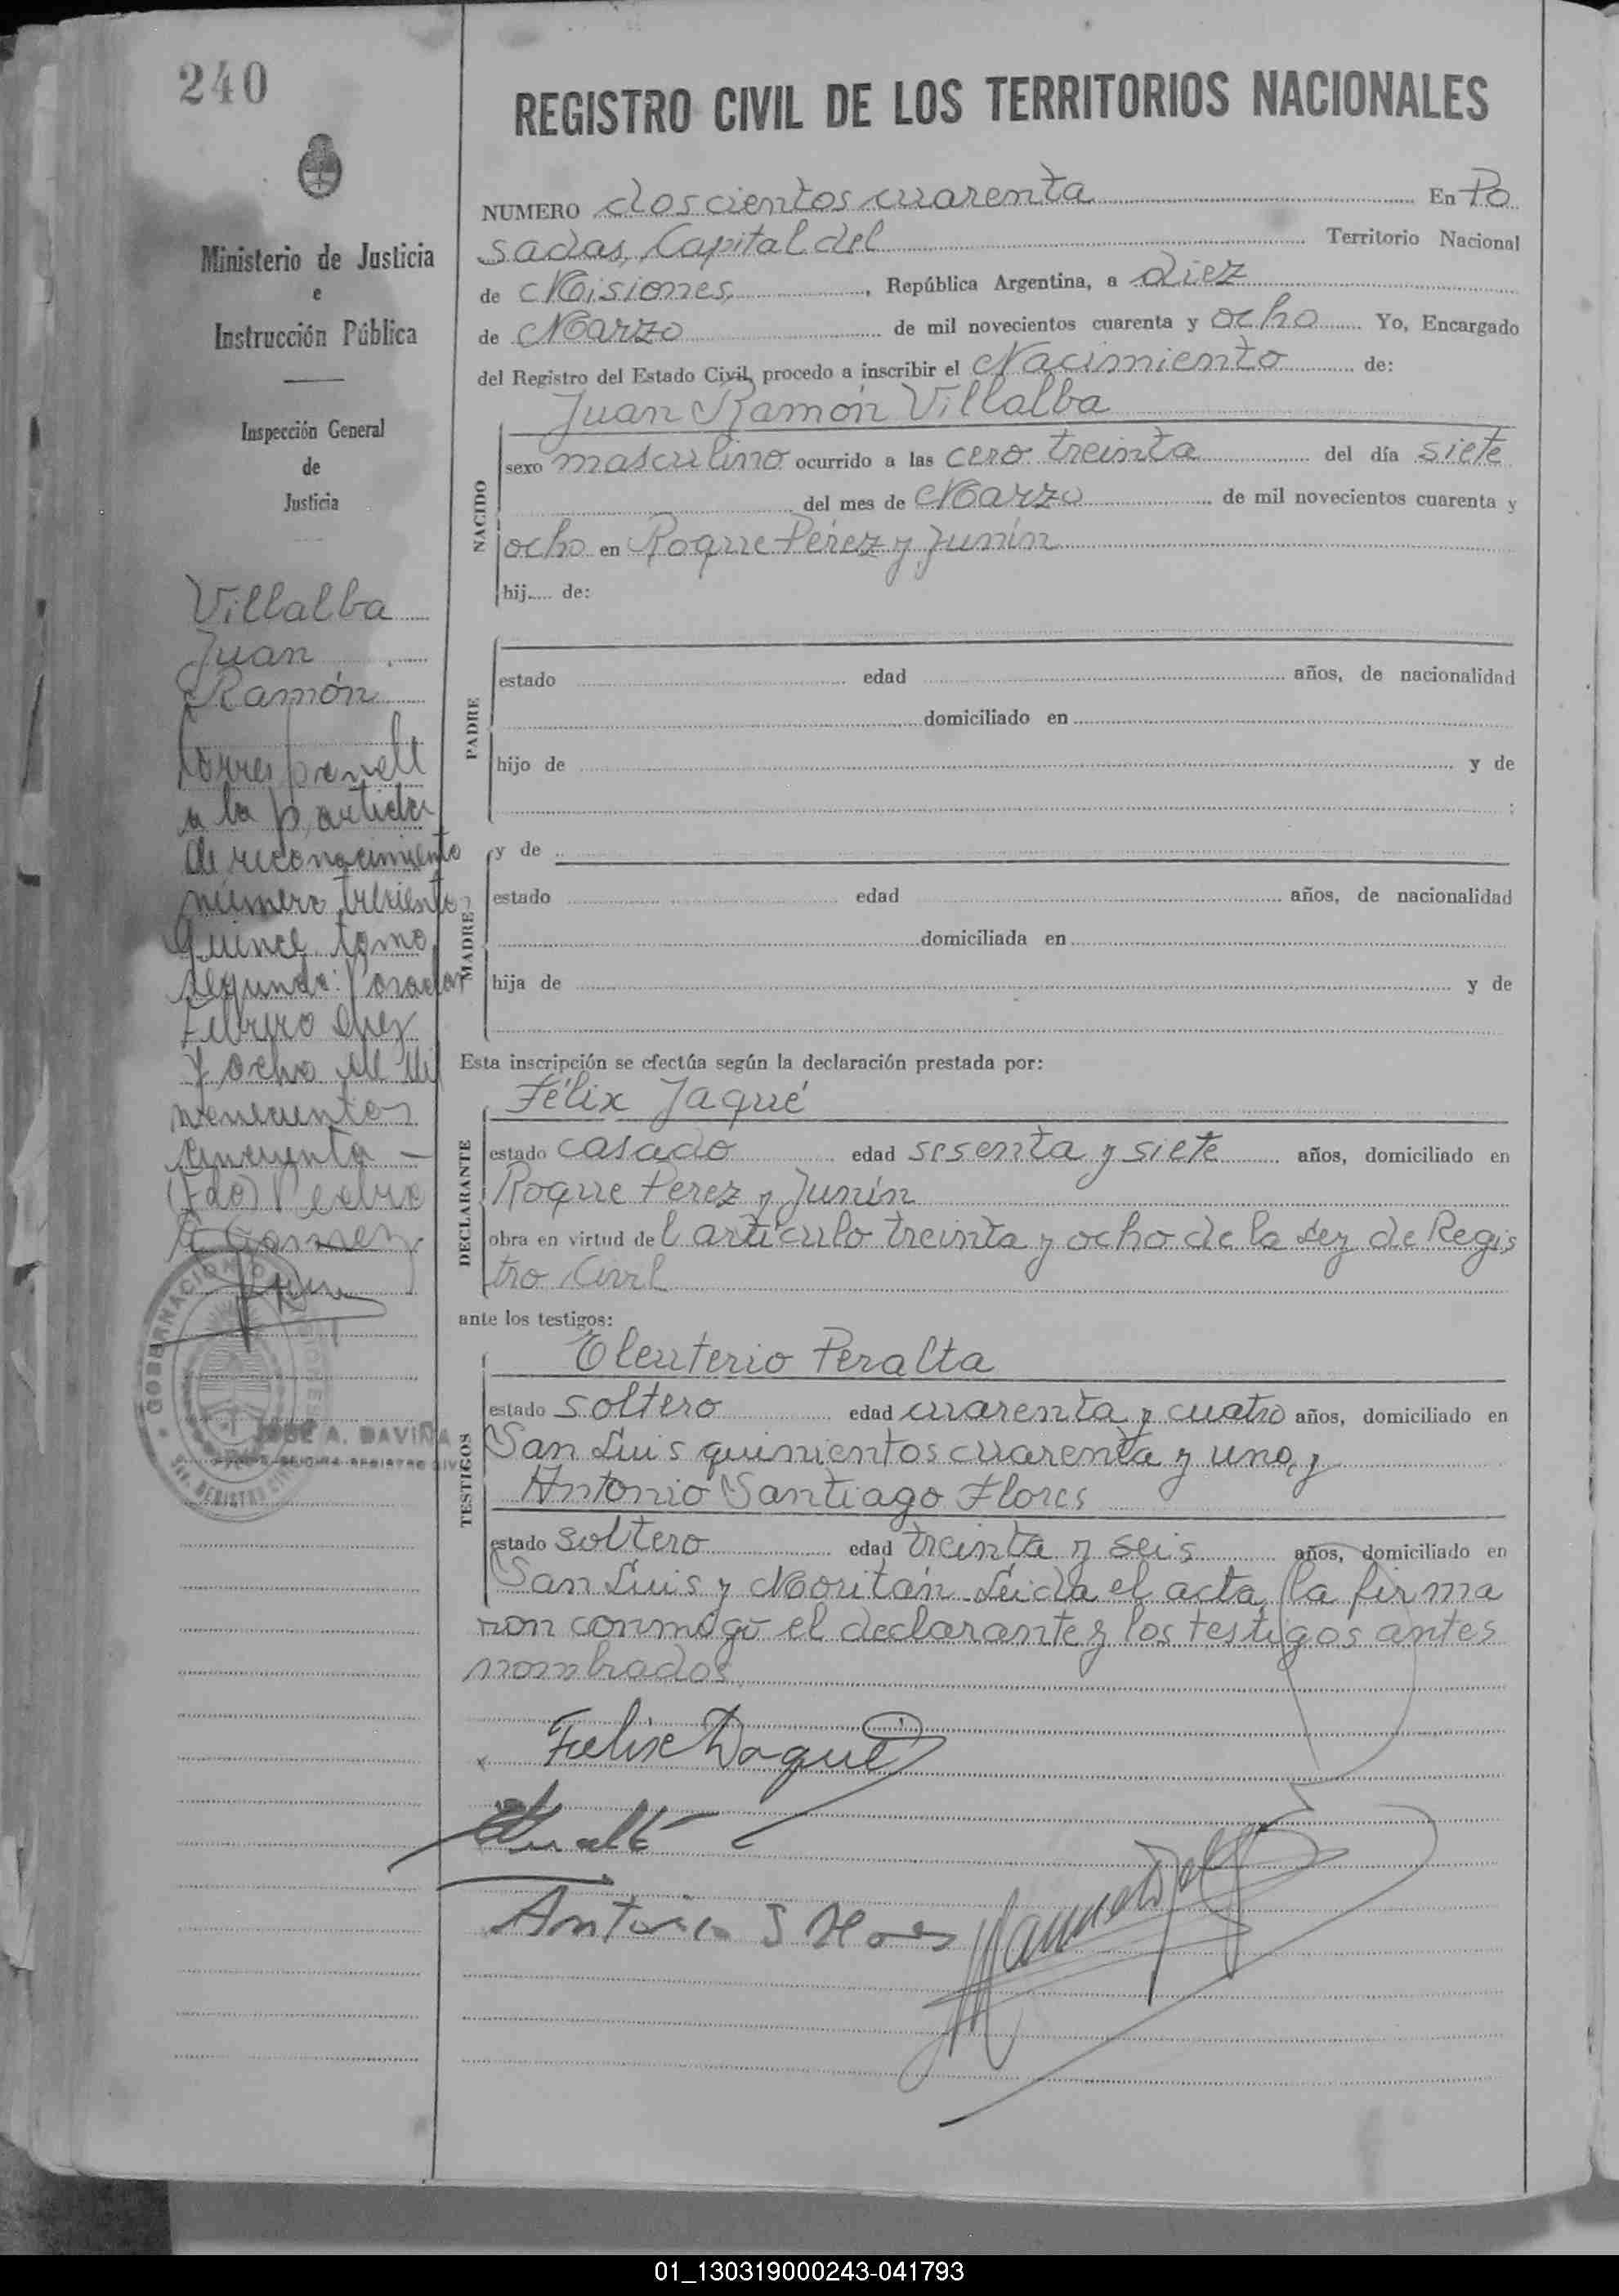 240
Ministerio de Justicia
e
Instrucción Pública
Inspección General
de
Justicia
Villalba
Juan
Ramón
Corresponde
a la partida
de reconocimiento
número trescientos
quince tomo
segundo: Posadas
Febrero diez
y ocho de mil
novecientos
cincuenta —
(Fdo) Pedro
Gomez
GOBERNACION
JOSE A. DAVIÑA
REGISTRO CIVIL
REGISTRO CIVIL DE LOS TERRITORIOS NACIONALES
NUMERO doscientos cuarenta En Po
sadas, Capital del Territorio Nacional
de Misiones, República Argentina, a diez
de Marzo de mil novecientos cuarenta y ocho Yo, Encargado
del Registro del Estado Civil, procedo a inscribir el Nacimiento de:
Juan Ramón Villalba
NACIDO
sexo masculino ocurrido a las cero treinta del día siete
del mes de Marzo de mil novecientos cuarenta y
ocho en Roque Pérez y Junín
hij de:
PADRE
estado edad años, de nacionalidad
domiciliado en
hijo de y de
;
MADRE
y de
estado edad años, de nacionalidad
domiciliada en
hija de y de
Esta inscripción se efectúa según la declaración prestada por:
DECLARANTE
Félix Jaqué
estado casado edad sesenta y siete años, domiciliado en
Roque Perez y Junín
obra en virtud del artículo treinta y ocho de la Ley de Regis
tro Civil
ante los testigos:
TESTIGOS
Eleuterio Peralta
estado soltero edad cuarenta y cuatro años, domiciliado en
San Luis quinientos cuarenta y uno, y
Antonio Santiago Flores
estado soltero edad treinta y seis años, domiciliado en
San Luis y Moritán. Leída el acta, la firma
ron conmigo el declarante y los testigos antes
nombrados
Felix Jaqué
Antonio S Flores
01_130319000243-041793